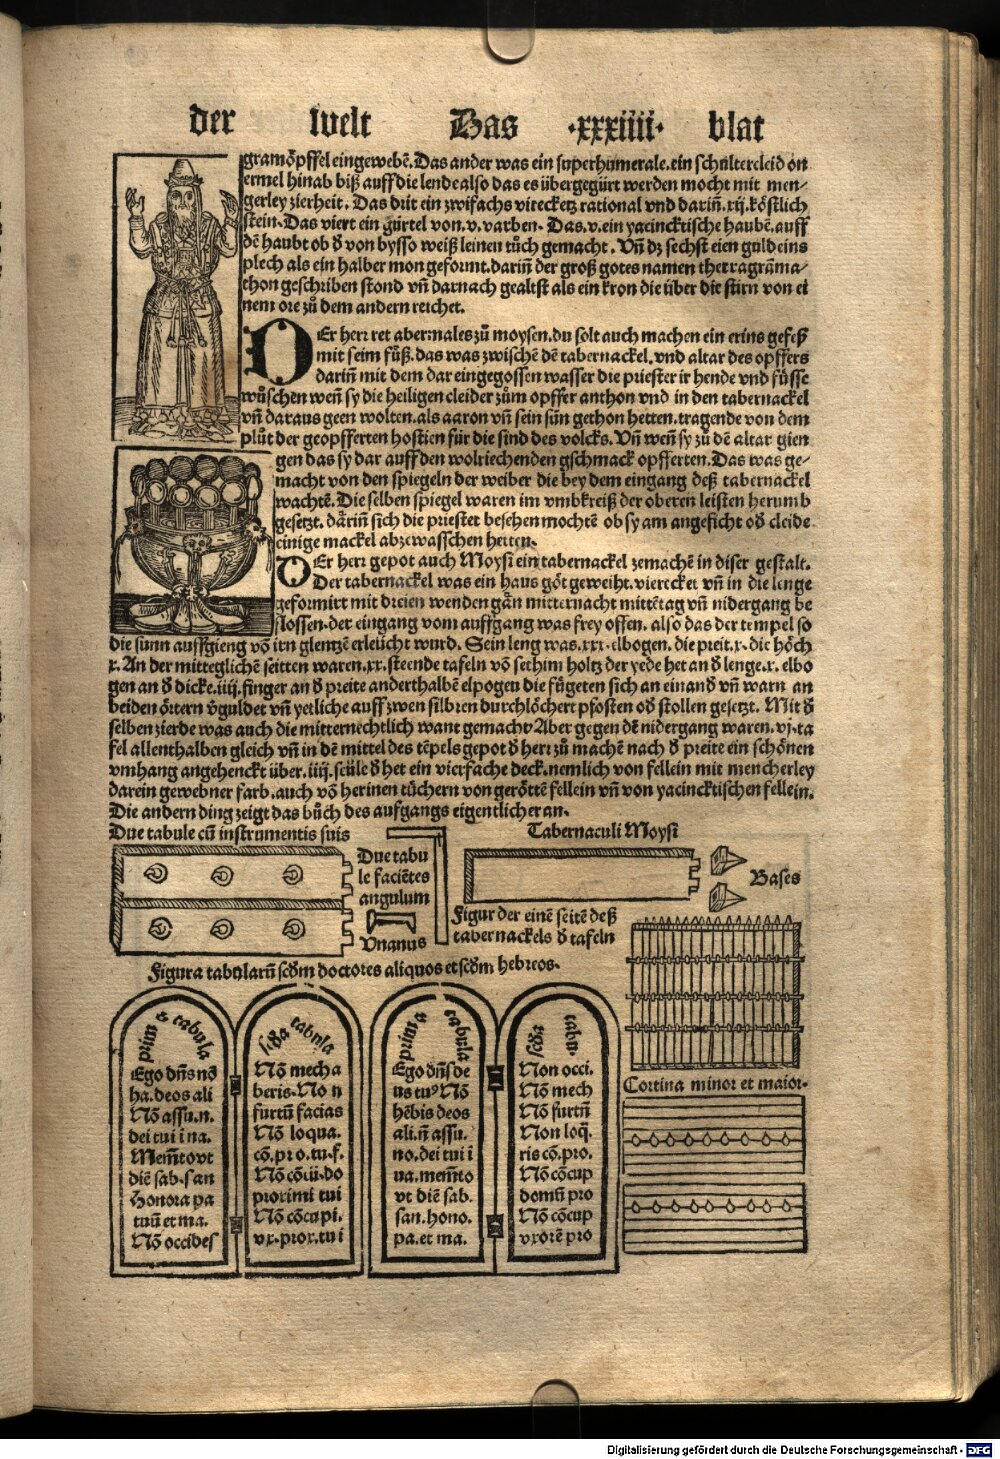 der welt Das ·xxxiiii· blat
gramöpffel eingewebē. Das ander was ein superhumerale. ein schultercleid on
ermel hinab biß auff die lende also das es übergegürt werden mocht mit men-
gerley zierheit. Das drit ein zwifachs virecketz rational vnd darin̄. xij. köstlich
stein. Das viert ein gürtel von. v. varben. Das. v. ein yacincktische haubē. auff
dē haubt ob d̄ von bysso weiß leinen tůch gemacht. Vn̄ dz sechst eien guldeins
plech als ein halber mon geformt. darin̄ der groß gotes namen thetragrāma-
thon geschriben stond vn̄ darnach gealtst als ein kron die über die stirn von ei
nem ore zů dem andern reichet.
DEr herr ret abermales zů moysen. du solt auch machen ein erins gefeß
mit seim fůß. das was zwischē dē tabernackel. vnd altar des opffers
darin̄ mit dem dar eingegossen wasser die priester ir hende vnd füsse
wůschen wen̄ sy die heiligen cleider zům opffer anthon vnd in den tabernackel
vn̄ daraus geen wolten. als aaron vn̄ sein sün gethon hetten. tragende von dem
plůt der geopfferten hostien für die sind des volcks. Vn̄ wen̄ sy zů dē altar gien
gen das sy dar auff den wolriechenden gschmack opfferten. Das was ge-
macht von den spiegeln der weiber die bey dem eingang deß tabernackel
wachtē. Die selben spiegel waren im vmbkreiß der oberen leisten herumb
gesetzt. darin̄ sich die priester besehen mochtē ob sy am angesicht od̄ cleide
einige mackel abzewasschen hetten.
DEr herr gepot auch Moysi ein tabernackel zemachē in diser gestalt.
Der tabernackel was ein haus got geweiht. vierecket vn̄ in die lenge
geformirt mit dreien wenden gän mitternacht mittētag vn̄ nidergang be
slossen. der eingang vom auffgang was frey offen. also das der tempel so
die sunn auffgieng vō irn glentzē erleücht wurd. Sein leng was. xxx. elbogen. die preit. x. die höch
x. An der mitteglichē seitten waren. xx. steende tafeln vō sethim holtz der yede het an d̄ lenge. x. elbo
gen an d̄ dicke. iiij. finger an d̄ preite anderthalbē elpogen die fůgeten sich an einand̄ vn̄ warn an
beiden örtern v̄guldet vn̄ yetliche auff zwen silbren durchlöchert pfosten od̄ stollen gesetzt. Mit d̄
selben zierde was auch die mitternechtlich want gemacht Aber gegen dē nidergang waren. vj. ta
fel allenthalben gleich vn̄ in dē mittel des tēpels gepot d̄ herr zů machē nach d̄ preite ein schönen
vmhang angehenckt über. iiij. seüle d̄ het ein vierfache deck. nemlich von fellein mit mencherley
darein gewebner farb. auch vō herinen tüchern von gerötē fellein vn̄ von yacincktischen fellein.
Die andern ding zeigt das bůch des aufgangs eigentlicher an.
Due tabule cū instrumentis suis
Due tabu
le faciētes
angulum
Vnanus
Tabernaculi Moysi
Bases
Figur der einē seitē deß
tabernackels d̄ tafeln
Figura tabularū scd̄m doctores aliquos et scd̄m hebreos.
Cortina minor et maior.
prima tabula
Ego dn̄s nō
ha. deos ali
Nō assu. n.
dei tui i na.
Mem̄to vt
diē sab. san
Honora pa
tuū et ma.
Nō occides
scd̄a tabula
Nō mecha
beris. No n
furtū facias
Nō loqua.
cō. pro. tu. f.
Nō cōcu. do
proximi tui
Nō cōcupi.
vx. prox. tui
prima tabula
Ego dn̄s de
us tuꝰ Nō
hēbis deos
ali. n̄ assu.
no. dei tui i
va. mem̄to
vt diē sab.
san. hono.
pa. et ma.
scd̄a tabu.
Non occi.
Nō mech
Nō furtū
Non loq̄.
ris cō. pro.
Nō cōcup
domū pro
Nō cōcup
vxorē pro
Digitalisierung gefördert durch die Deutsche Forschungsgemeinschaft - DFG